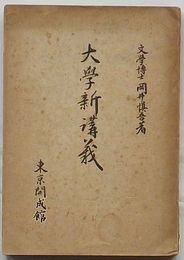 文學博士 岡井愼吾著
大學新講義
東京開成館